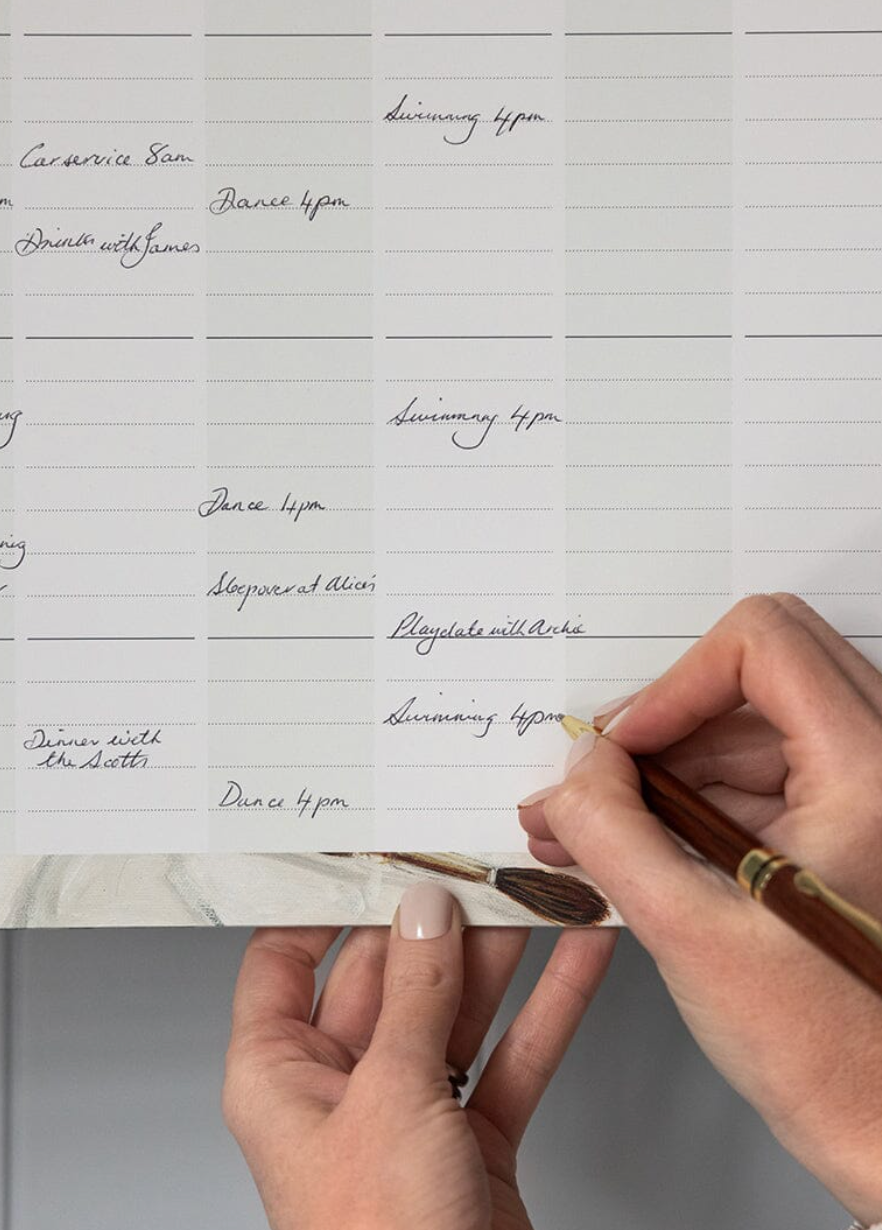 Swimming 4pm
Car service 8am
m
Dance 4pm
Drinks with James
Swimming 4pm
Dance 4pm
Sleepover at Alice's
Playdate with Archie
Swimming 4pm
Dinner with
the Scotts
Dance 4pm